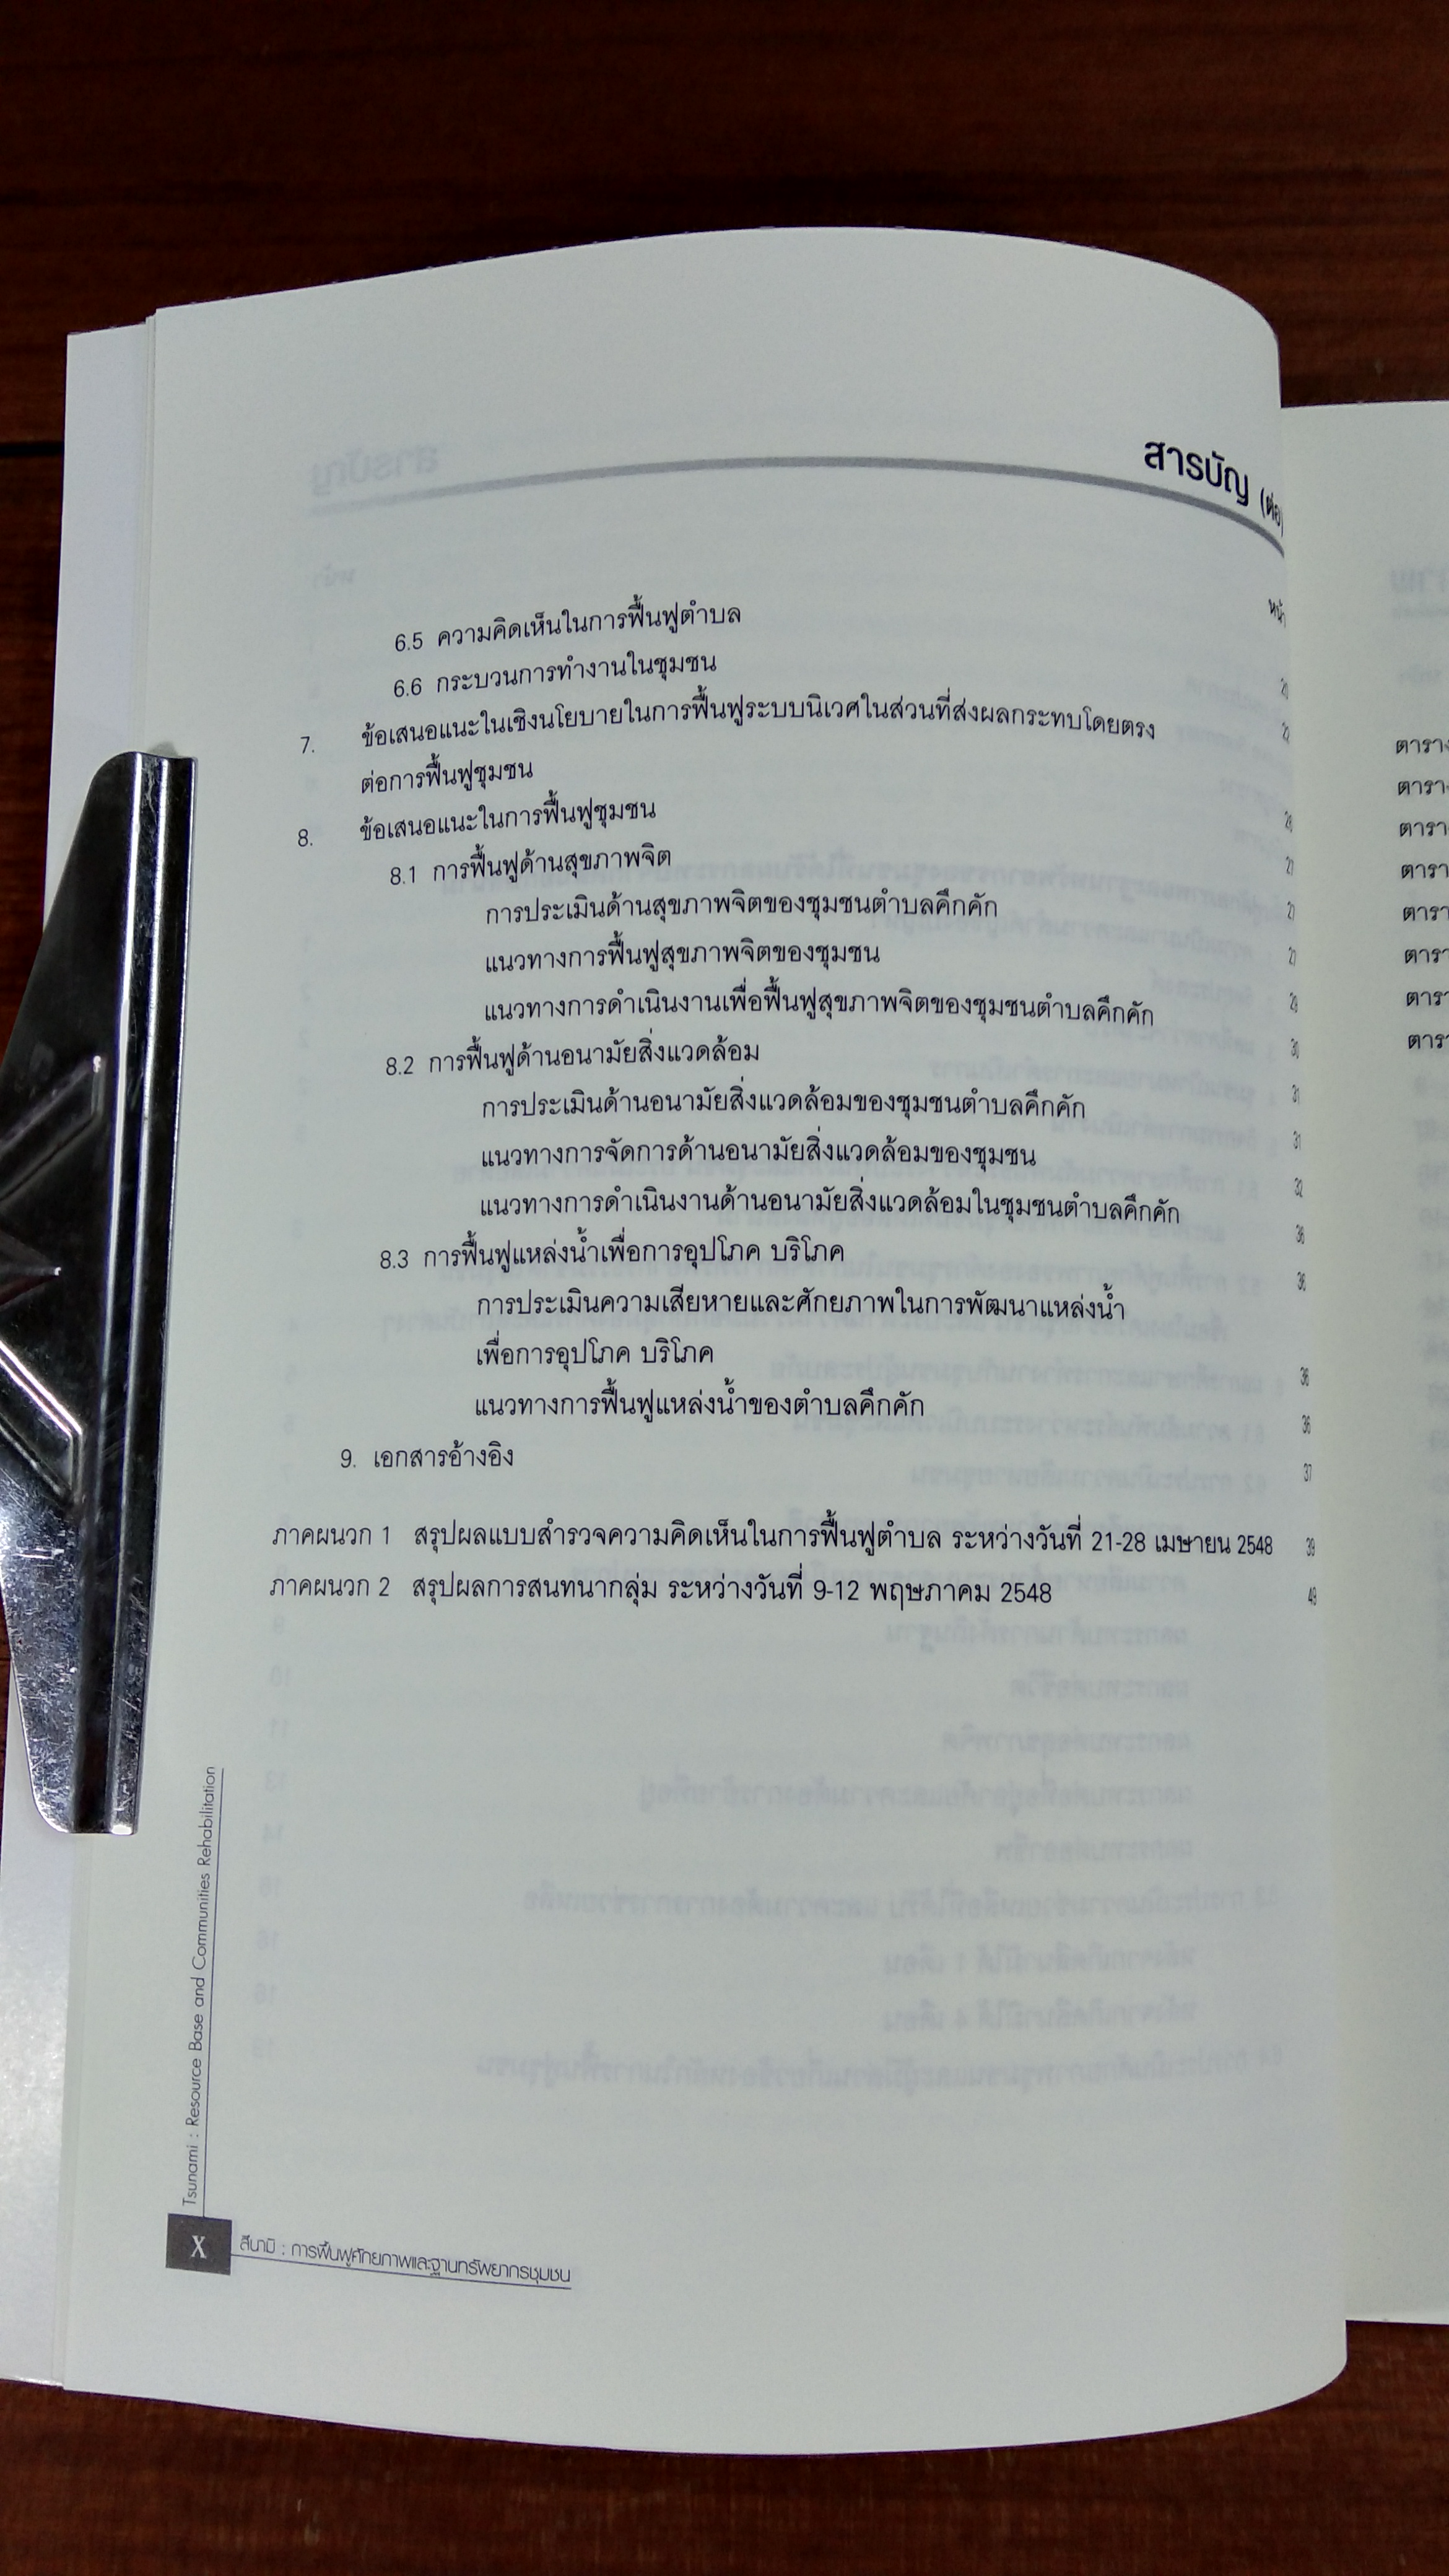 สารบัญ (ต่อ)
หน้า
6.5 ความคิดเห็นในการฟื้นฟูตำบล
6.6 กระบวนการทำงานในชุมชน
7. ข้อเสนอแนะในเชิงนโยบายในการฟื้นฟูระบบนิเวศในส่วนที่ส่งผลกระทบโดยตรง
ต่อการฟื้นฟูชุมชน
8. ข้อเสนอแนะในการฟื้นฟูชุมชน
8.1 การฟื้นฟูด้านสุขภาพจิต
การประเมินด้านสุขภาพจิตของชุมชนตำบลคึกคัก
แนวทางการฟื้นฟูสุขภาพจิตของชุมชน
แนวทางการดำเนินงานเพื่อฟื้นฟูสุขภาพจิตของชุมชนตำบลคึกคัก
8.2 การฟื้นฟูด้านอนามัยสิ่งแวดล้อม
การประเมินด้านอนามัยสิ่งแวดล้อมของชุมชนตำบลคึกคัก
แนวทางการจัดการด้านอนามัยสิ่งแวดล้อมของชุมชน
แนวทางการดำเนินงานด้านอนามัยสิ่งแวดล้อมในชุมชนตำบลคึกคัก
8.3 การฟื้นฟูแหล่งน้ำเพื่อการอุปโภค บริโภค
การประเมินความเสียหายและศักยภาพในการพัฒนาแหล่งน้ำ
เพื่อการอุปโภค บริโภค
แนวทางการฟื้นฟูแหล่งน้ำของตำบลคึกคัก
9. เอกสารอ้างอิง 37
ภาคผนวก 1 สรุปผลแบบสำรวจความคิดเห็นในการฟื้นฟูตำบล ระหว่างวันที่ 21-28 เมษายน 2548 39
ภาคผนวก 2 สรุปผลการสนทนากลุ่ม ระหว่างวันที่ 9-12 พฤษภาคม 2548 49
Tsunami : Resource Base and Communities Rehabilitation
X สึนามิ : การฟื้นฟูศักยภาพและฐานทรัพยากรชุมชน